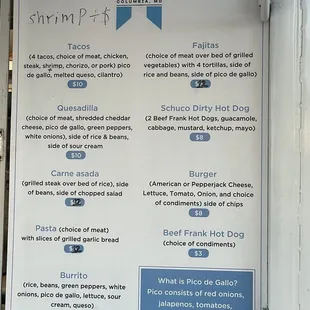 shrimp +$
COLUMBIA, MO
Tacos
(4 tacos, choice of meat, chicken,
steak, shrimp, chorizo, or pork) pico
de gallo, melted queso, cilantro)
$10
Quesadilla
(choice of meat, shredded cheddar
cheese, pico de gallo, green peppers,
white onions), side of rice & beans,
side of sour cream
$10
Carne asada
(grilled steak over bed of rice), side
of beans, side of chopped salad
Pasta (choice of meat)
with slices of grilled garlic bread
Burrito
(rice, beans, green peppers, white
onions, pico de gallo, lettuce, sour
cream, queso)
Fajitas
(choice of meat over bed of grilled
vegetables) with 4 tortillas, side of
rice and beans, side of pico de gallo)
Schuco Dirty Hot Dog
(2 Beef Frank Hot Dogs, guacamole,
cabbage, mustard, ketchup, mayo)
$8
Burger
(American or Pepperjack Cheese,
Lettuce, Tomato, Onion, and choice
of condiments) side of chips
$8
Beef Frank Hot Dog
(choice of condiments)
$3
What is Pico de Gallo?
Pico consists of red onions,
jalapenos, tomatoes,